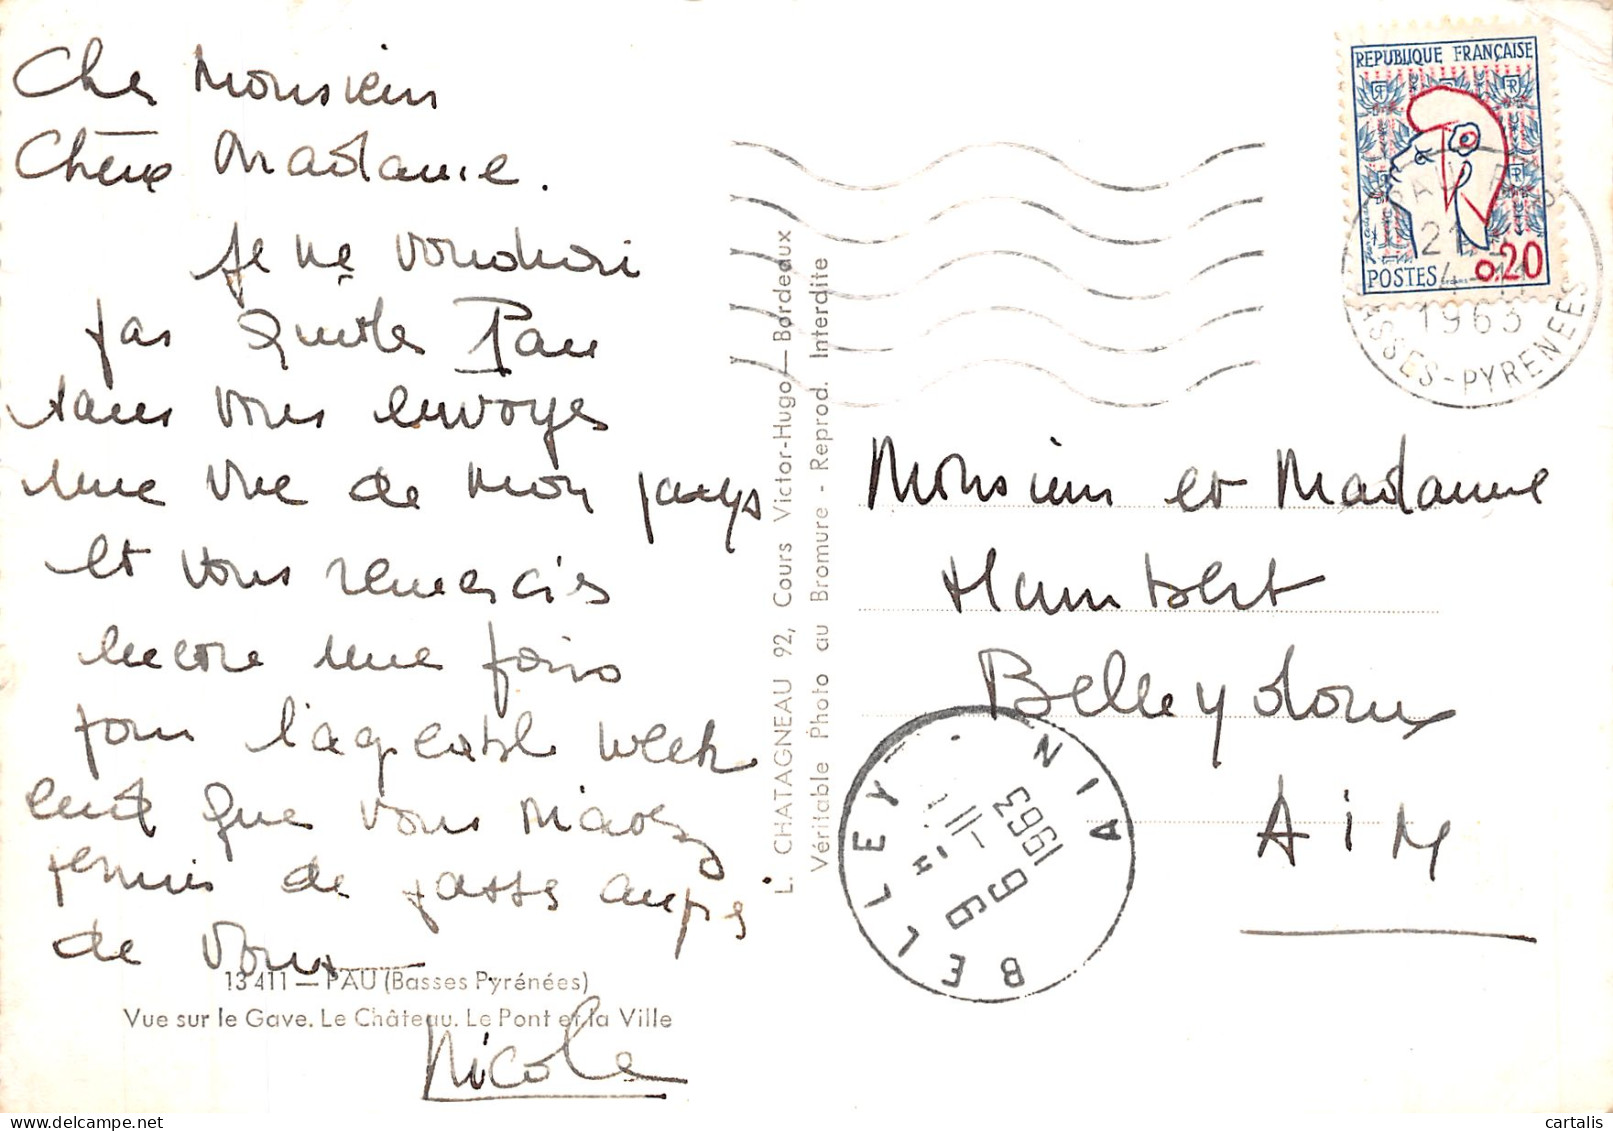 Cher Monsieur
Chère Madame.
Je ne voudrai
pas quitter Pau
sans vous envoyer
une vue de mon pays
et vous remercier
encore une fois
pour l'agréable week
end que vous m'avez
permis de passer auprès
de vous
13 411 — PAU (Basses Pyrénées)
Vue sur le Gave. Le Château. Le Pont et la Ville
Nicole
L. CHATAGNEAU 92, Cours Victor-Hugo — Bordeaux
Véritable Photo au Bromure - Reprod. Interdite
REPUBLIQUE FRANÇAISE
POSTES 0,20
PAU
21
4
1963
BASSES-PYRENEES
Monsieur et Madame
Humbert
Belleydoux
AiN
BELLEY AIN
11
1963
cartalis